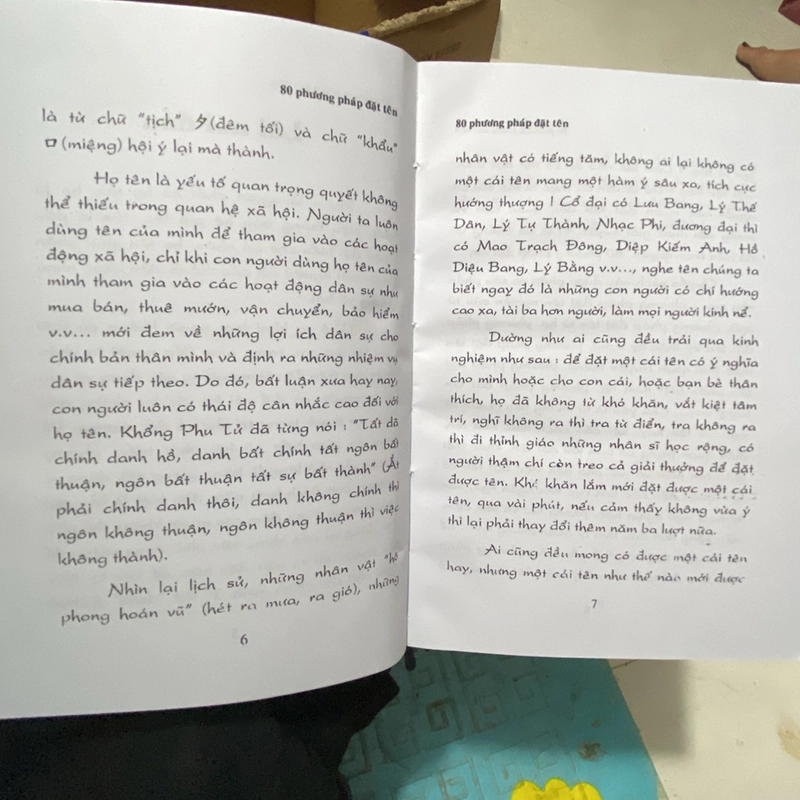 80 phương pháp đặt tên
là từ chữ "tịch" 夕(đêm tối) và chữ "khẩu"
口 (miệng) hội ý lại mà thành.
Họ tên là yếu tố quan trọng quyết không
thể thiếu trong quan hệ xã hội. Người ta luôn
dùng tên của mình để tham gia vào các hoạt
động xã hội, chỉ khi con người dùng họ tên của
mình tham gia vào các hoạt động dân sự như
mua bán, thuê mướn, vận chuyển, bảo hiểm
v.v... mới đem về những lợi ích dân sự cho
chính bản thân mình và định ra những nhiệm vụ
dân sự tiếp theo. Do đó, bất luận xưa hay nay,
con người luôn có thái độ cân nhắc cao đối với
họ tên. Khổng Phu Tử đã từng nói : "Tất dã
chính danh hồ, danh bất chính tất ngôn bất
thuận, ngôn bất thuận tất sự bất thành" (Ắt
phải chính danh thôi, danh không chính thì
ngôn không thuận, ngôn không thuận thì việc
không thành).
Nhìn lại lịch sử, những nhân vật "hô
phong hoán vũ" (hét ra mưa, ra gió), những
6
80 phương pháp đặt tên
nhân vật có tiếng tăm, không ai lại không có
một cái tên mang một hàm ý sâu xa, tích cực
hướng thượng ! Cổ đại có Lưu Bang, Lý Thế
Dân, Lý Tự Thành, Nhạc Phi, đương đại thì
có Mao Trạch Đông, Diệp Kiếm Anh, Hồ
Diệu Bang, Lý Bằng v.v..., nghe tên chúng ta
biết ngay đó là những con người có chí hướng
cao xa, tài ba hơn người, làm mọi người kính nể.
Dường như ai cũng đều trải qua kinh
nghiệm như sau : để đặt một cái tên có ý nghĩa
cho mình hoặc cho con cái, hoặc bạn bè thân
thích, họ đã không từ khó khăn, vắt kiệt tâm
trí, nghĩ không ra thì tra từ điển, tra không ra
thì đi thỉnh giáo những nhân sĩ học rộng, có
người thậm chí còn treo cả giải thưởng để đặt
được tên. Khó khăn lắm mới đặt được một cái
tên, qua vài phút, nếu cảm thấy không vừa ý
thì lại phải thay đổi thêm năm ba lượt nữa.
Ai cũng đều mong có được một cái tên
hay, nhưng một cái tên như thế nào mới được
7